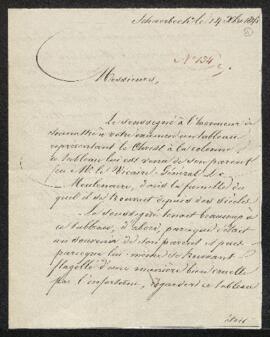 Schaerbeek, le 14 Xbre
Nº 134
Messieurs,
Le soussigné a l'honneur de
soumettre à votre examen un tableau
représentant le Christ à la colonne,
ce tableau lui est venu de son parent
feu Mr. le Vicaire Général De
Meulenaere, dans la famille du
quel il se trouvait depuis des siècles.
Le soussigné tenait beaucoup à
ce tableau, d'abord, parce que c'était
un souvenir de son parent et puis
parceque lui-même se trouvant
flagellé d'une manière bien cruelle
par l'infortune, regardait ce tableau